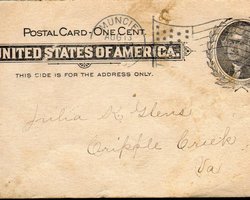 MUNCIE
POSTAL CARD - ONE CENT.
UNITED STATES OF AMERICA.
THIS SIDE IS FOR THE ADDRESS ONLY.
Julia K. Glens
Cripple Creek
Va